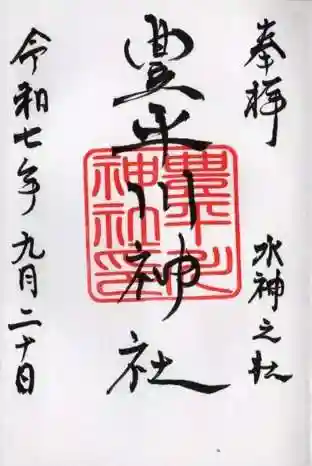 奉拝
水神之杜
豊平川神社
豊平川神社印
令和七年九月二十日